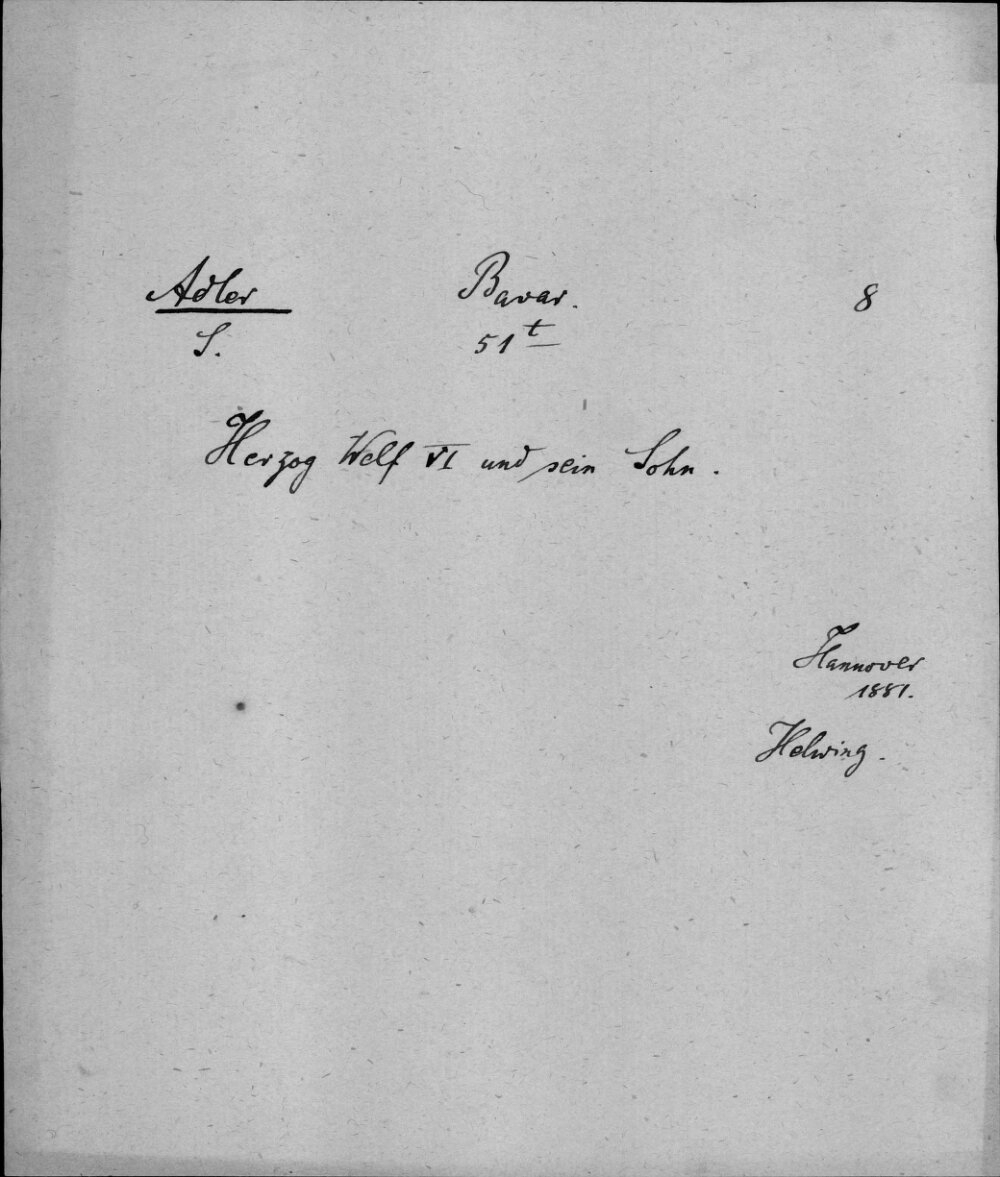 Adler Bavar. 8
S. 51t
Herzog Welf VI und sein Sohn.
Hannover
1881.
Helwing.